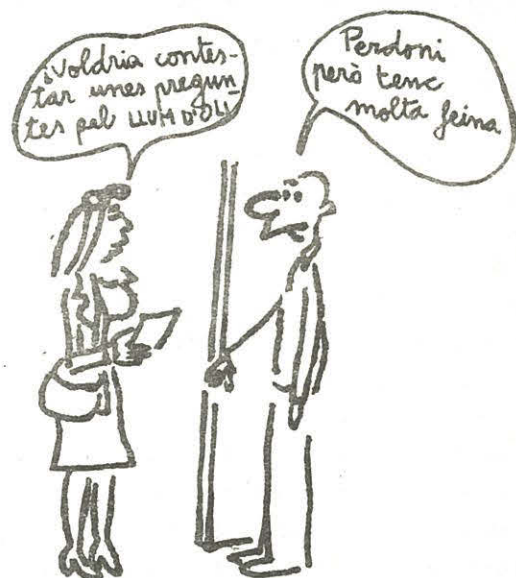 ¿Voldria contes-
tar unes pregun-
tes pel LLUM D'OLI
Perdoni
però tenc
molta feina